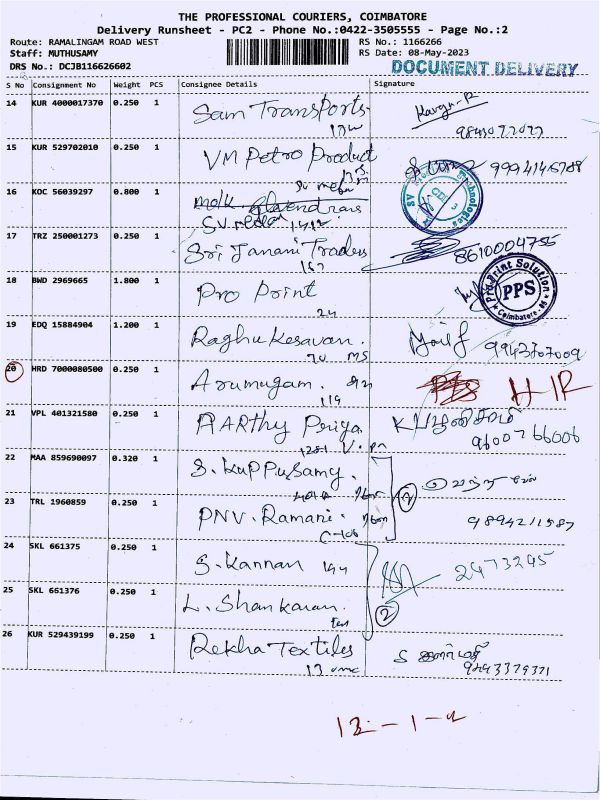 THE PROFESSIONAL COURIERS, COIMBATORE
Delivery Runsheet - PC2 - Phone No.:0422-3505555 - Page No.:2
Route: RAMALINGAM ROAD WEST RS No.: 1166266
Staff: MUTHUSAMY RS Date: 08-May-2023
DRS No.: DCJB116626602 DOCUMENT DELIVERY
S No Consignment No Weight PCS Consignee Details Signature
14 KUR 4000017370 0.250 1 Sam Transports
15 KUR 529702010 0.250 1 VM Petro Product 9994145788
16 KOC 56039297 0.800 1
SV
Technologies
17 TRZ 250001273 0.250 1 Sri Janani Traders 8610004755
167
18 BWD 2969665 1.800 1 Pro Print
24
Pro Print Solution
PPS
Coimbatore
19 EDQ 15884904 1.200 1 Raghu Kesavan. 9943707009
70 MS
20 HRD 7000080500 0.250 1 Arumugam.
119
21 VPL 401321580 0.250 1 AARThy Priya
9600766006
22 MAA 859690097 0.320 1 S. Kuppusamy.
2
23 TRL 1960859 0.250 1 PNV. Ramani. 9894211587
C-106
24 SKL 661375 0.250 1 S. Kannan 144 2473245
25 SKL 661376 0.250 1 L. Shankaran.
2
26 KUR 529439199 0.250 1 Rekha Textiles
9443379371